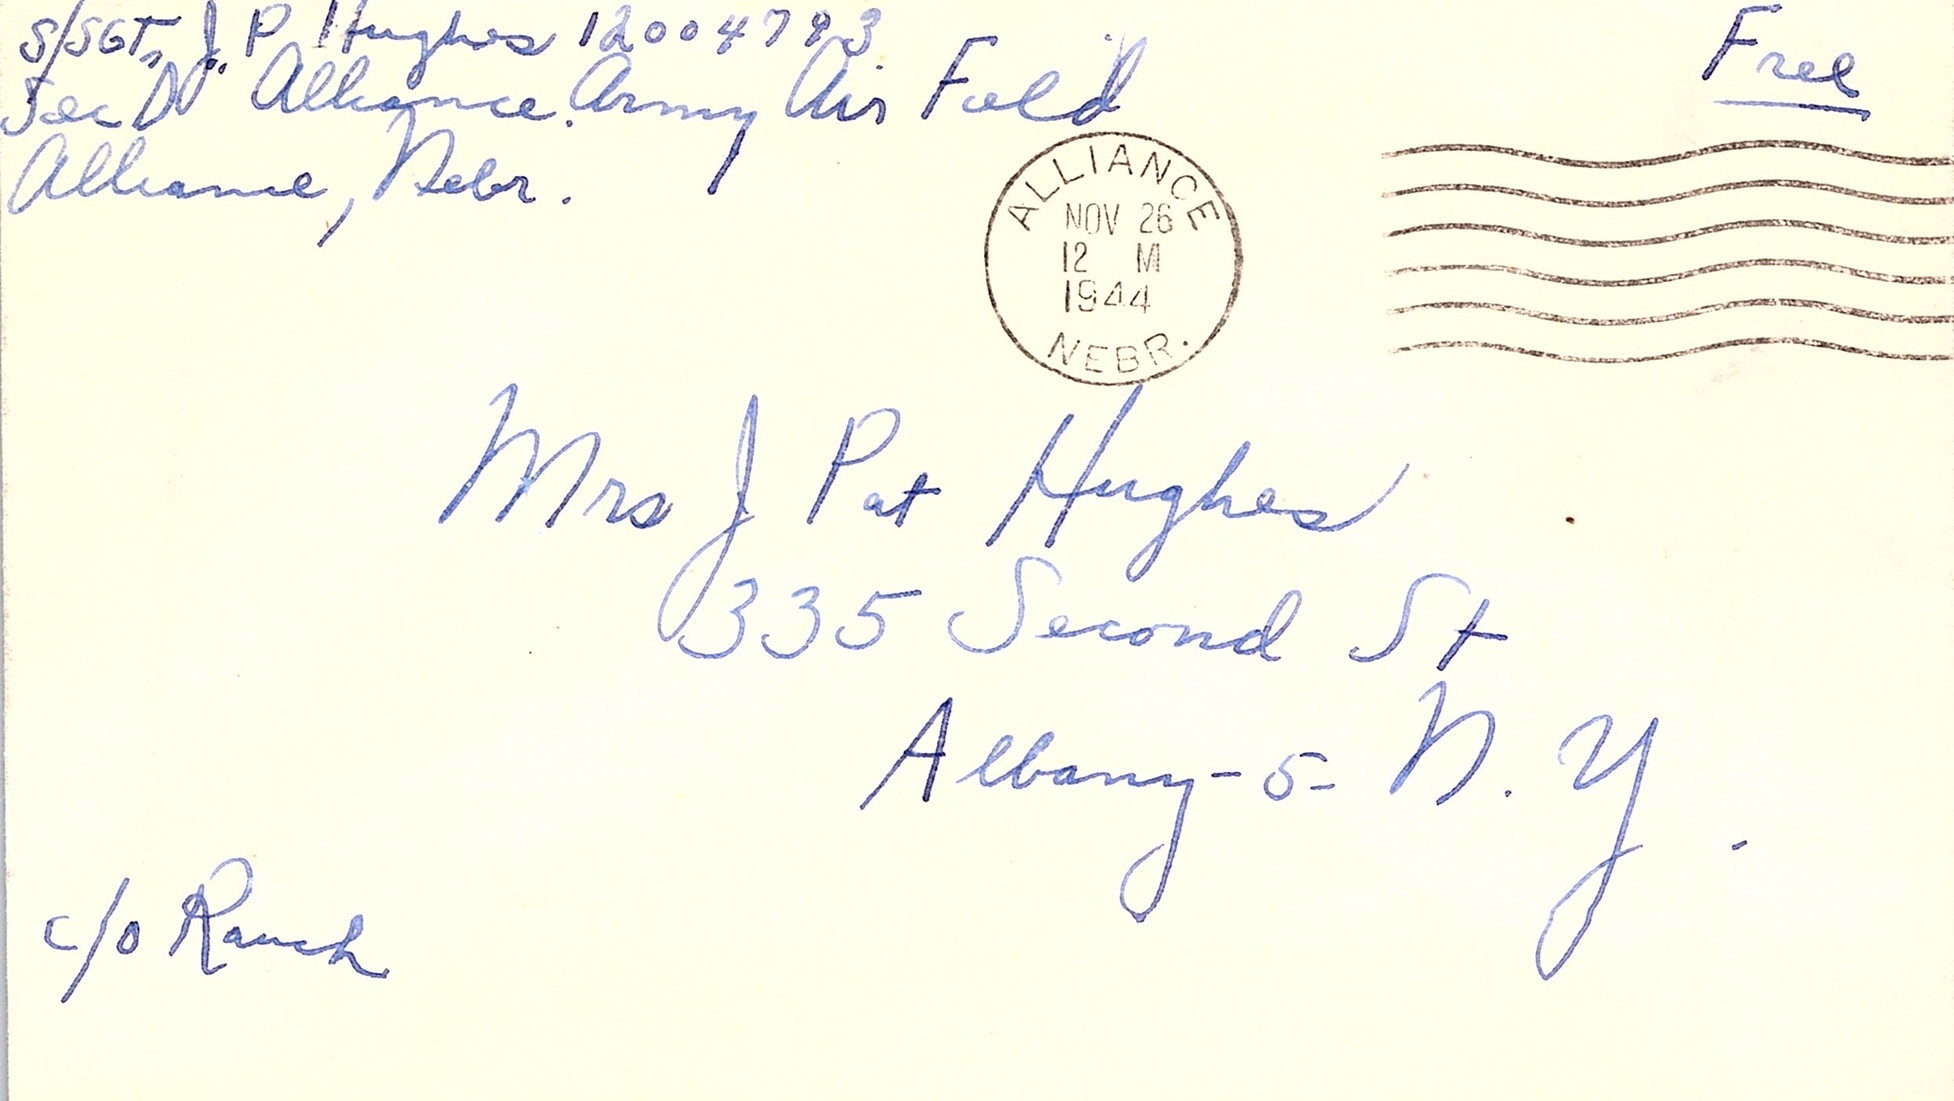 S/SGT. J. P Hughes 12004793
Sec "D" Alliance Army Air Field
Alliance, Nebr.
Free
ALLIANCE
NOV 26
12 M
1944
NEBR.
Mrs J Pat Hughes
335 Second St
Albany-5- N.Y.
c/o Rauch